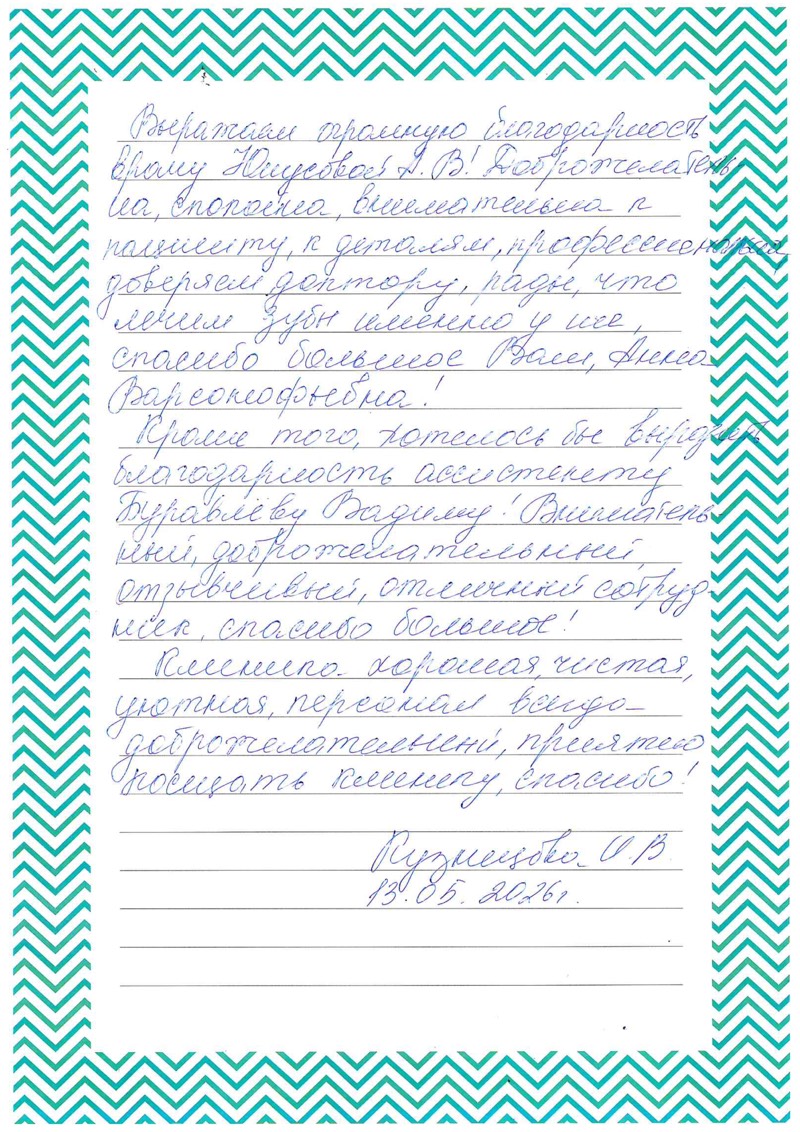 Выражаем огромную благодарность
врачу Юнусовой А. В! Доброжелатель
на, спокойна, внимательна к
пациенту, к деталям, профессиональна,
доверяем доктору, рады, что
лечим зубы именно у нее,
спасибо большое Вам, Анна
Варсонофьевна!
Кроме того, хотелось бы выразить
благодарность ассистенту
Буравлёву Вадиму! Вниматель-
ный, доброжелательный,
отзывчивый, отличный сотруд-
ник, спасибо большое!
Клиника хорошая, чистая,
уютная, персонал всегда
доброжелательный, приятно
посещать клинику, спасибо!
Кузнецова И.В.
13.05.2026г.